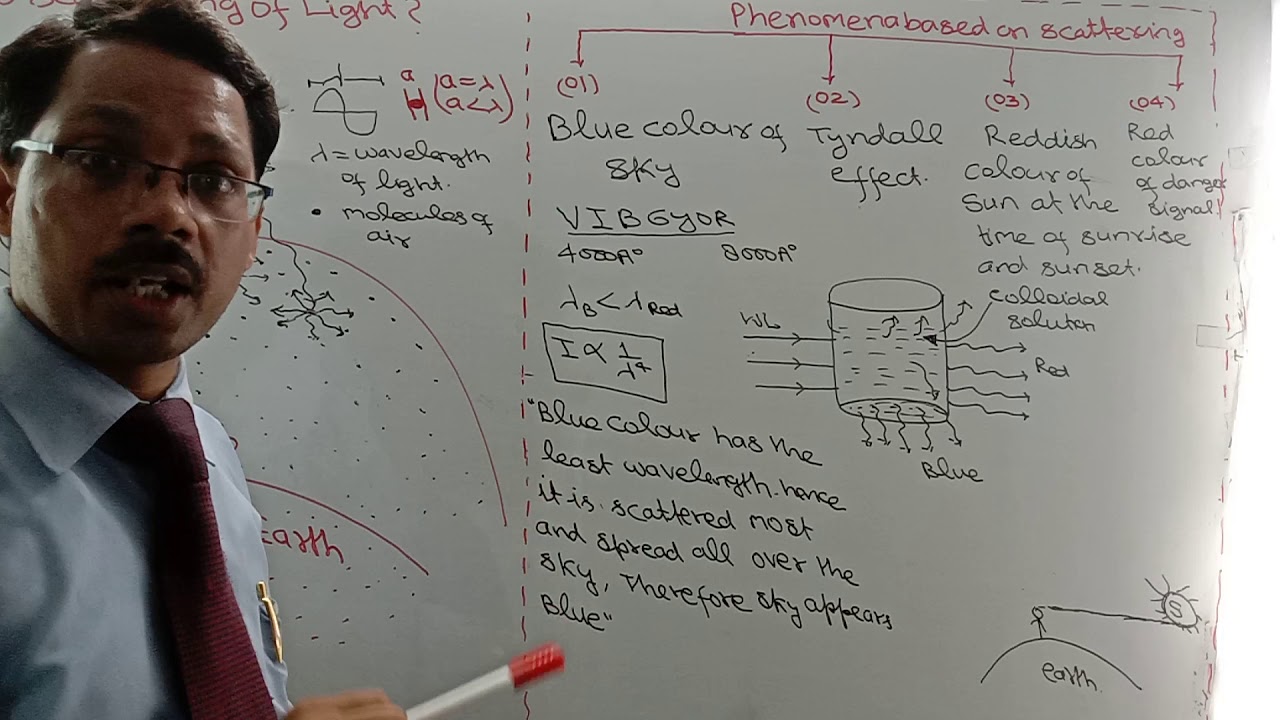 ng of Light?
a (a=λ)
(a<λ)
λ=wavelength
of light.
• molecules of
air
Earth
Phenomena based on scattering
(01)
(02)
(03)
(04)
Blue colour of
sky
VIBGYOR
4000A° 8000A°
λB < λRed
I ∝ 1/λ⁴
"Blue colour has the
least wavelength. hence
it is scattered most
and spread all over the
sky, Therefore sky appears
Blue"
Tyndall
effect.
Reddish
colour of
sun at the
time of sunrise
and sunset.
Red
colour
of danger
signal
colloidal
solution
WL
Red
Blue
S
earth